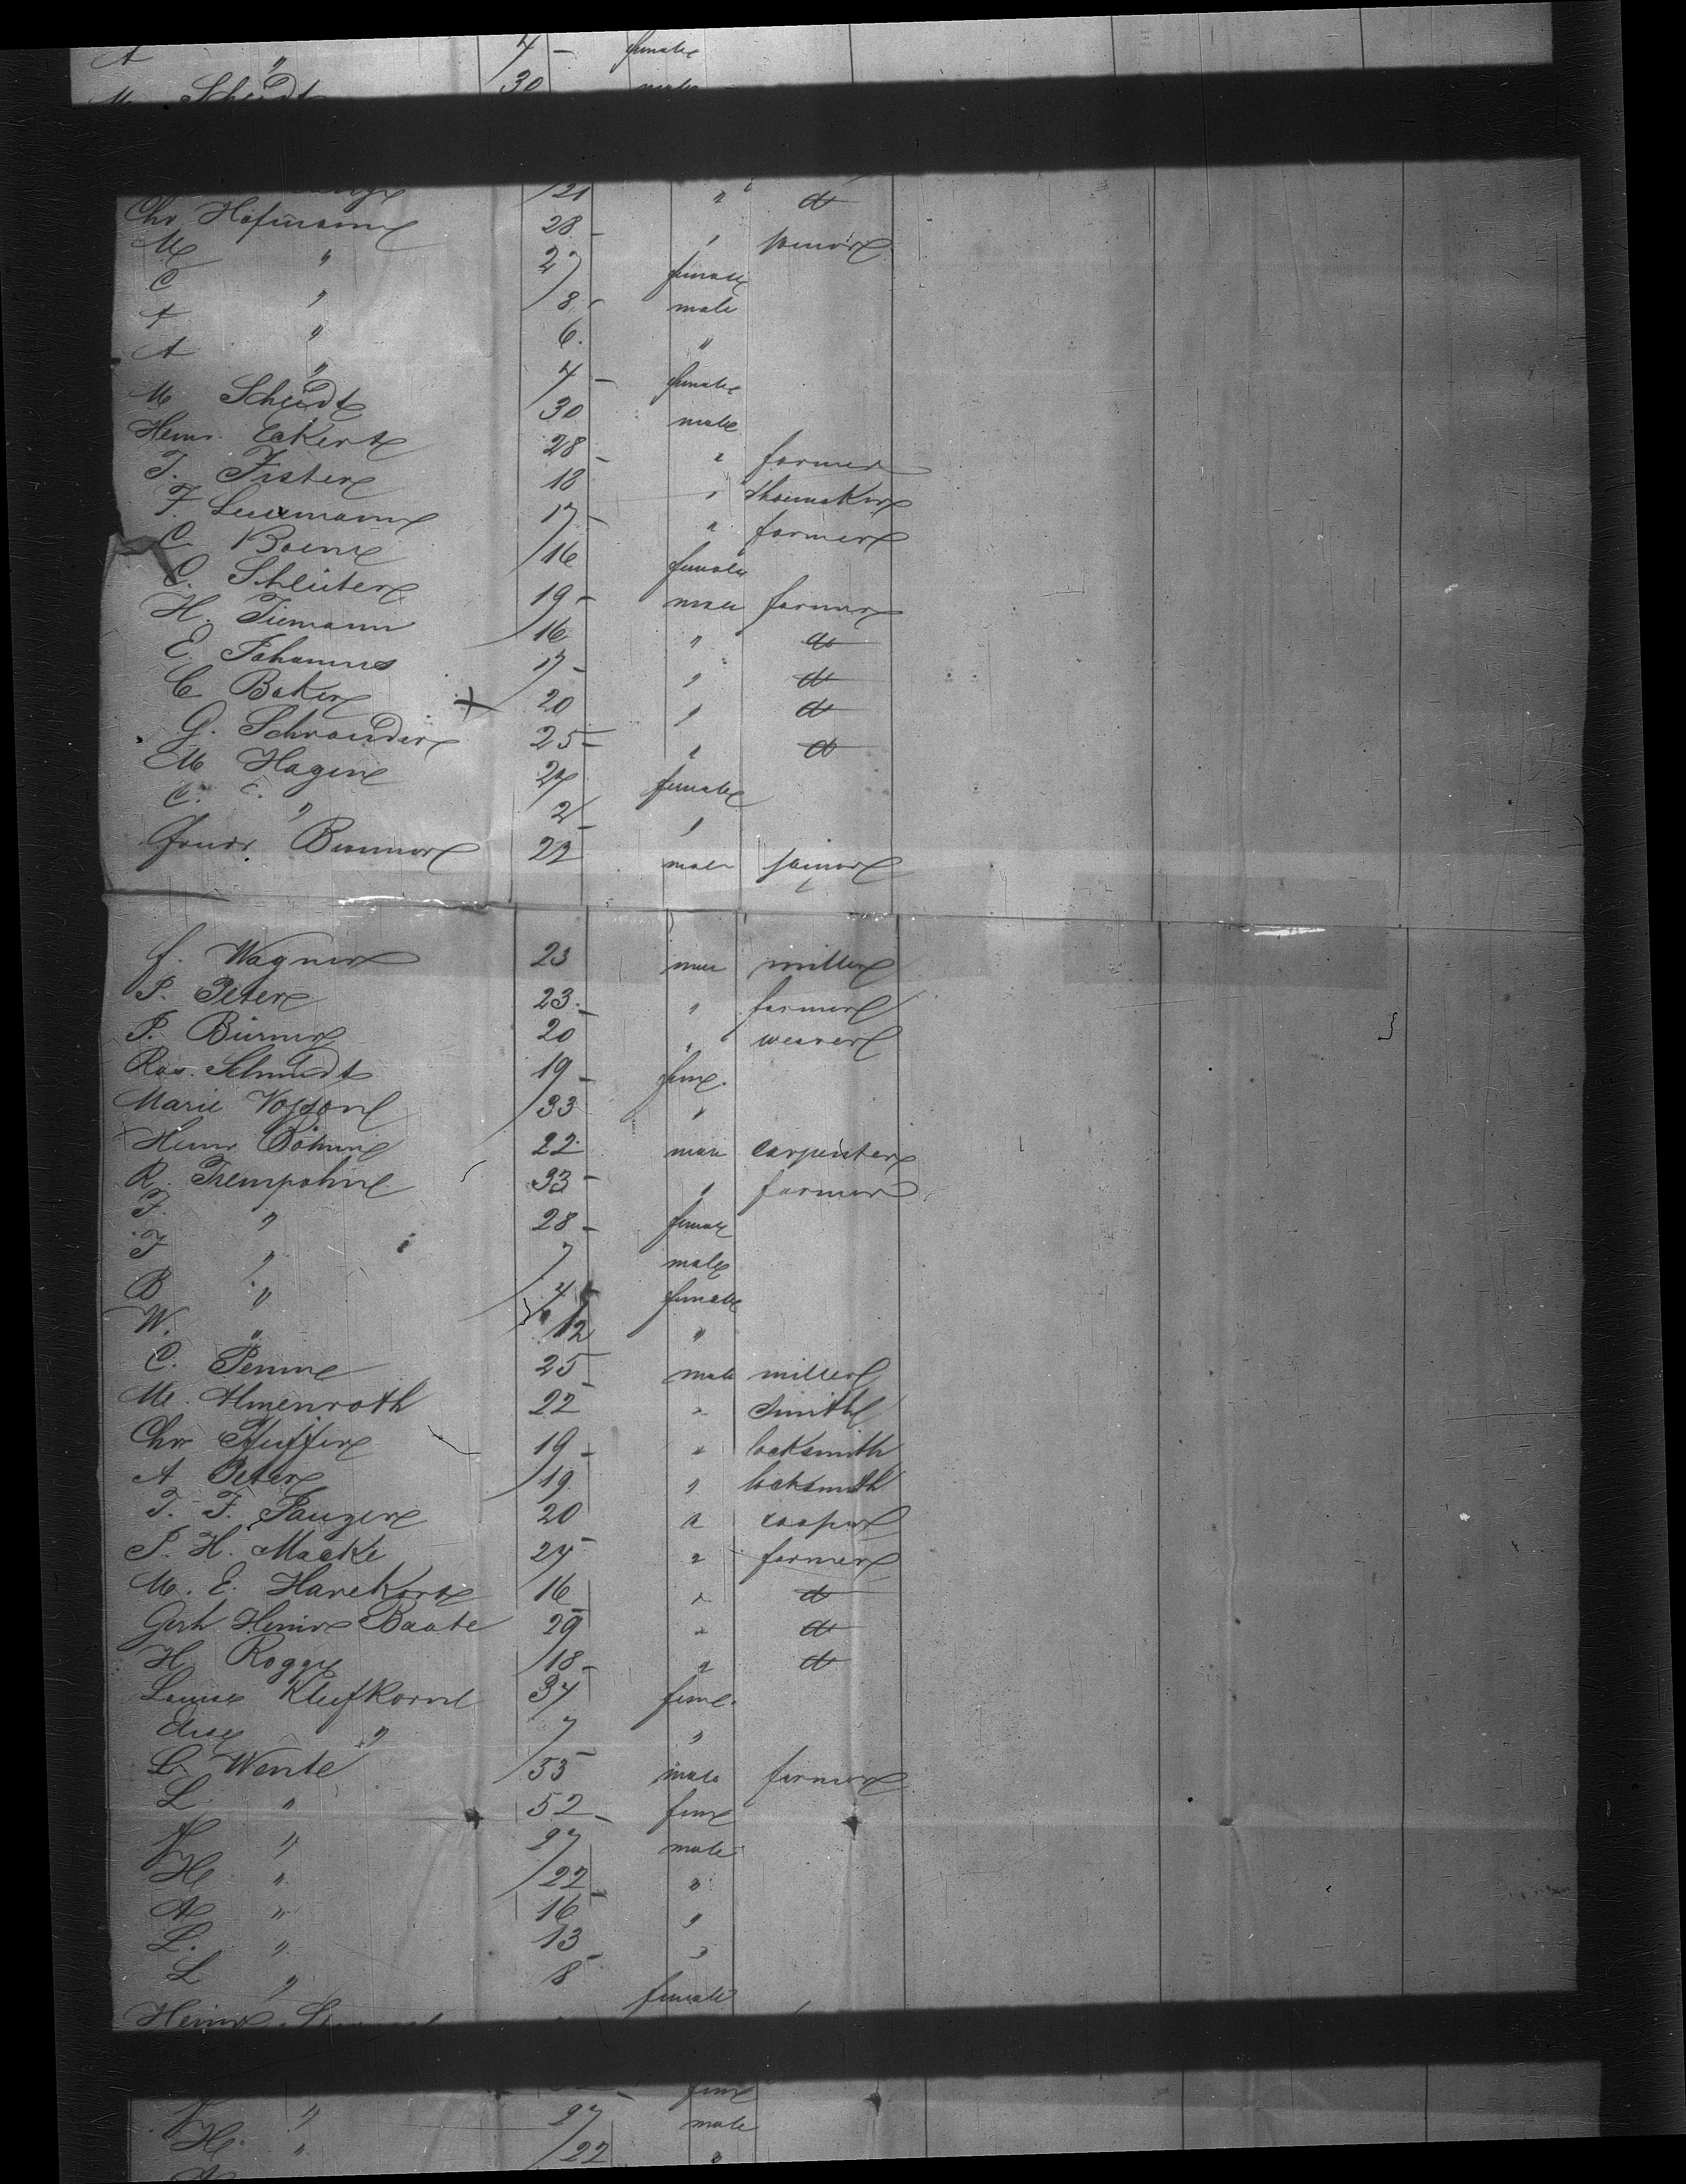 A " 4 - female
M Scheidt 30 male
21 " do
Chr Hofmann 28 - "
M " 27 female
C " 8 male
F " 6 "
A " 4 - female
M Scheidt 30 male
Heinr. Eckert 28 - " farmer
J. Fister 18 " shoemaker
F. 17 - " farmer
C. 16 female
C. Schlüter 19 - male farmer
H. Tiemann 16 " do
E. Johannes 17 - " do
C Baker 20 " do
G. Schrauder 25 - " do
M Hagen 24 female
C. " 2 - "
22 male
f. Wagner 23 male miller
P. Peter 23 - " farmer
P. 20 " weaver
Ros. Schmidt 19 - fem.
Marie 33 "
Heinr Böhme 22 male carpenter
R. 33 - " farmer
F. " 28 - female
F " 7 male
B " 4 female
W. " "
C. 25 - male miller
M. Almenroth 22 " smith
Chr Pfeiffer 19 - " locksmith
A Peter 19 " locksmith
T. F. 20 " cooper
P. H. Macke 24 " farmer
M. E. Havekort 16 - " do
Gerh Heinr Baate 29 " do
H. Rogge 18 - " do
Louise Klufkorn 34 fem.
" 7 "
L. Wente 55 male farmer
L " 52 - fem
" 27 male
H " 22 - "
A " 16 "
L. " 13 - "
L " 8 female
Heinr
" 27 male
H. " 22 "